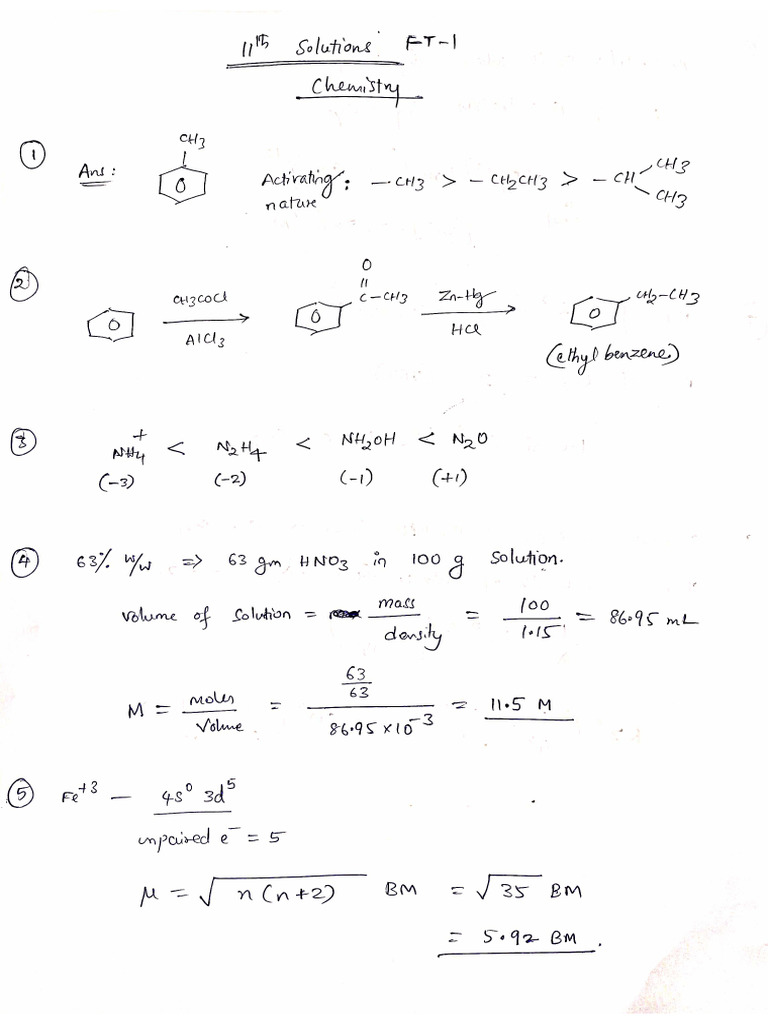 11th Solutions FT-1
Chemistry
① Ans: CH3 Activating nature: -CH3 > -CH2CH3 > -CH CH3 CH3
② CH3COCl AlCl3 O C-CH3 Zn-Hg HCl CH2-CH3
(ethyl benzene)
③ NH4+ < N2H4 < NH2OH < N2O
(-3) (-2) (-1) (+1)
④ 63% w/w => 63 gm HNO3 in 100 g solution.
Volume of solution = mass/density = 100/1.15 = 86.95 mL
M = moles/Volume = (63/63)/(86.95×10^-3) = 11.5 M
⑤ Fe+3 - 4s0 3d5
unpaired e- = 5
μ = √n(n+2) BM = √35 BM
= 5.92 BM.